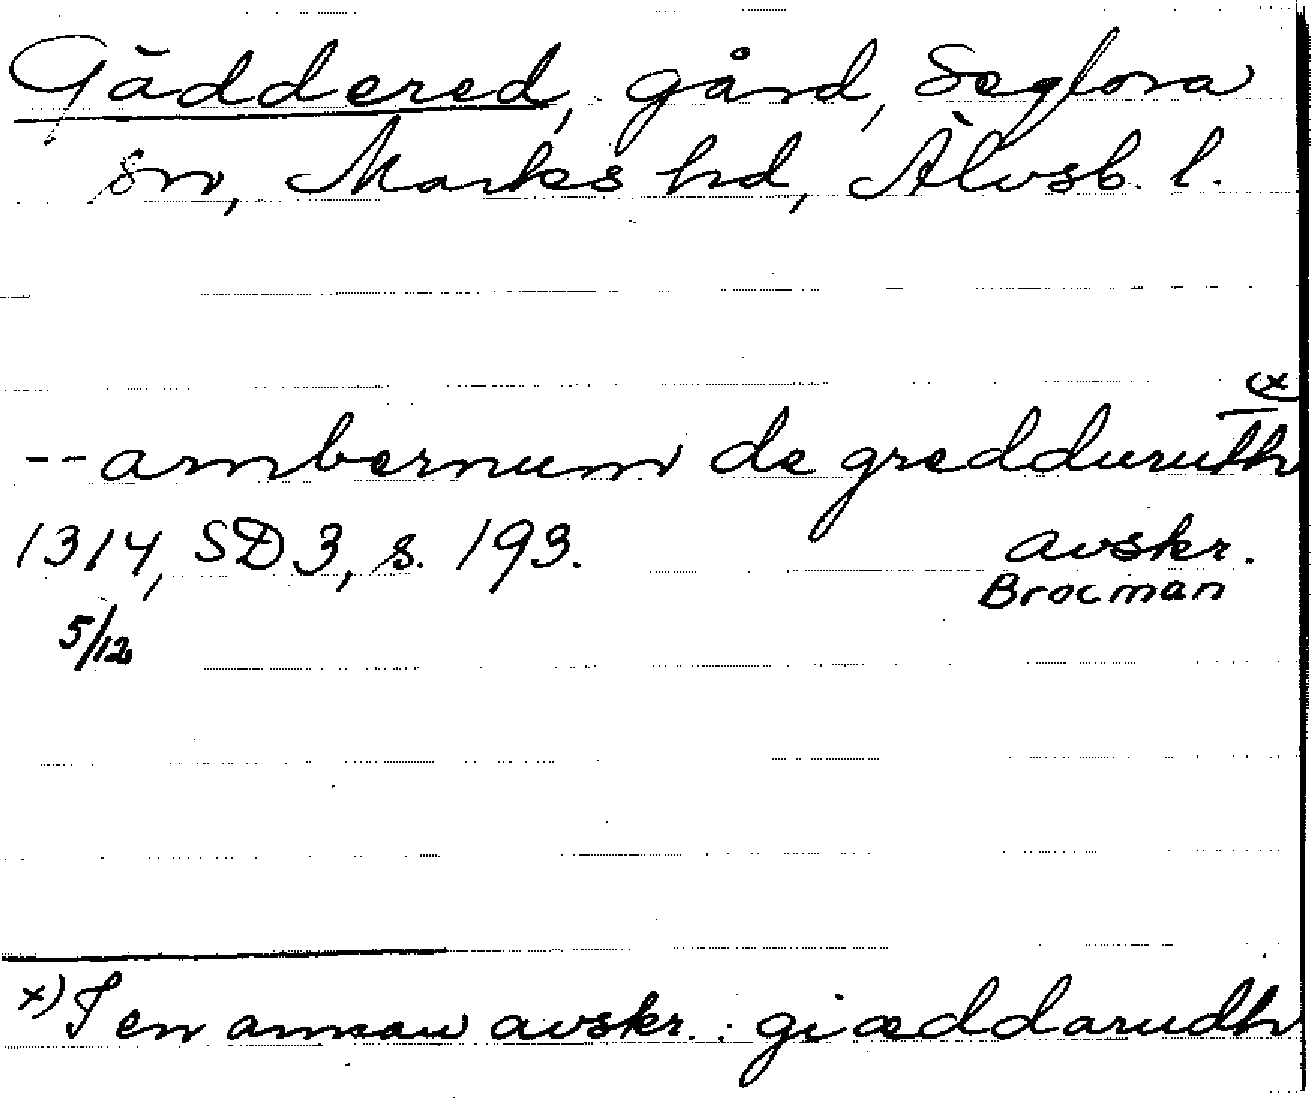 Gäddered, gård, Seglora
sn, Marks hd, Älvsb. l.
x)
-- ambernum de gredduruth
1314, SD 3, s. 193. avskr.
Brocman
5/12
x) I en annan avskr.: giæddarudh